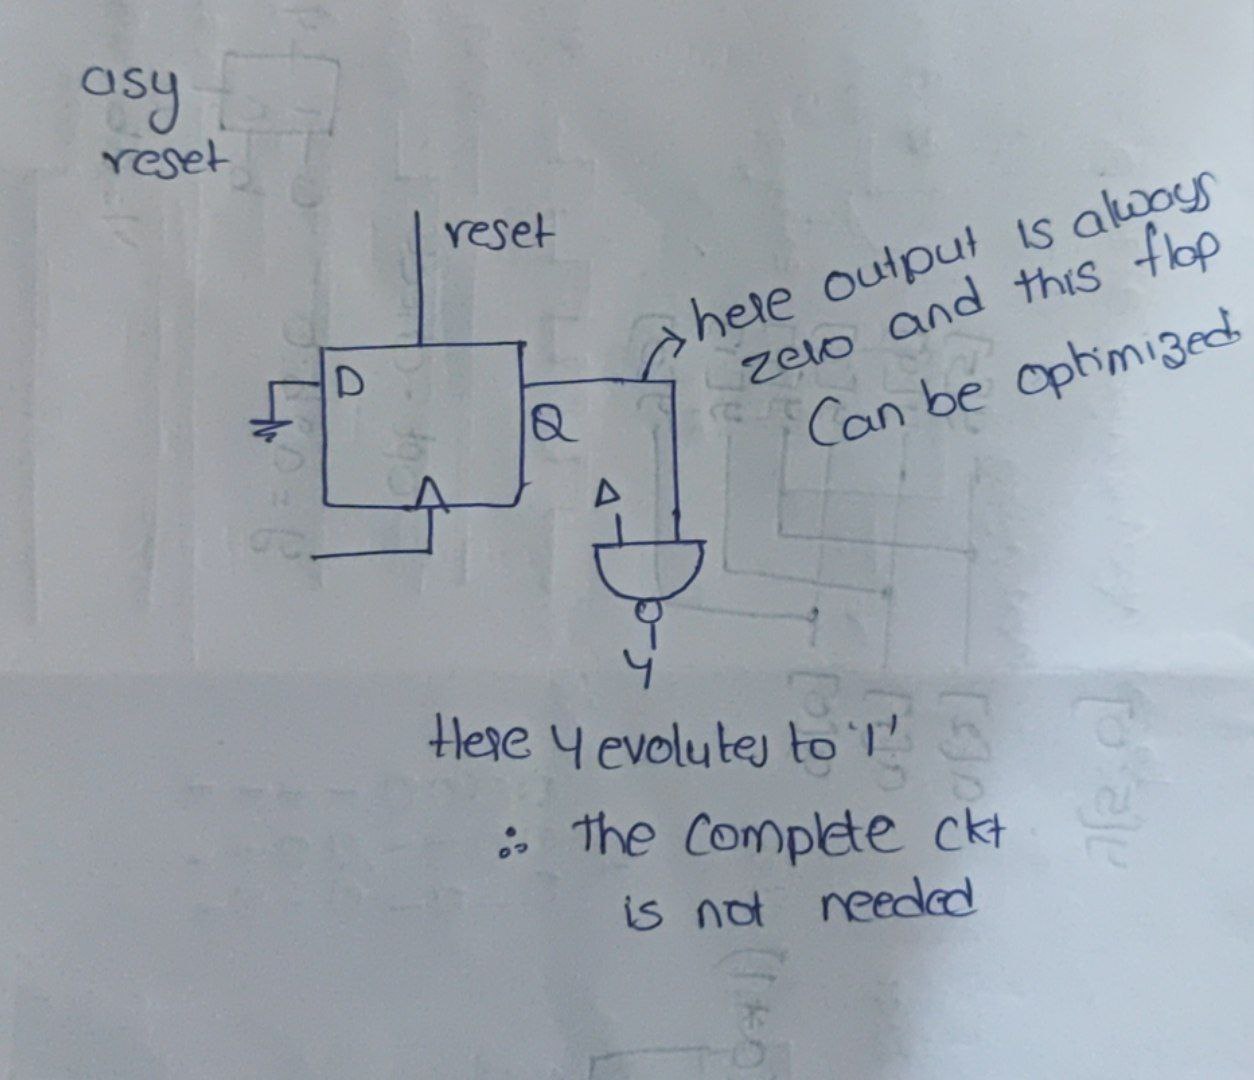 asy
reset
reset
here output is always
zero and this flop
Can be optimized
D
Q
A
Y
Here Y evolutes to '1'
∴ the complete ckt
is not needed